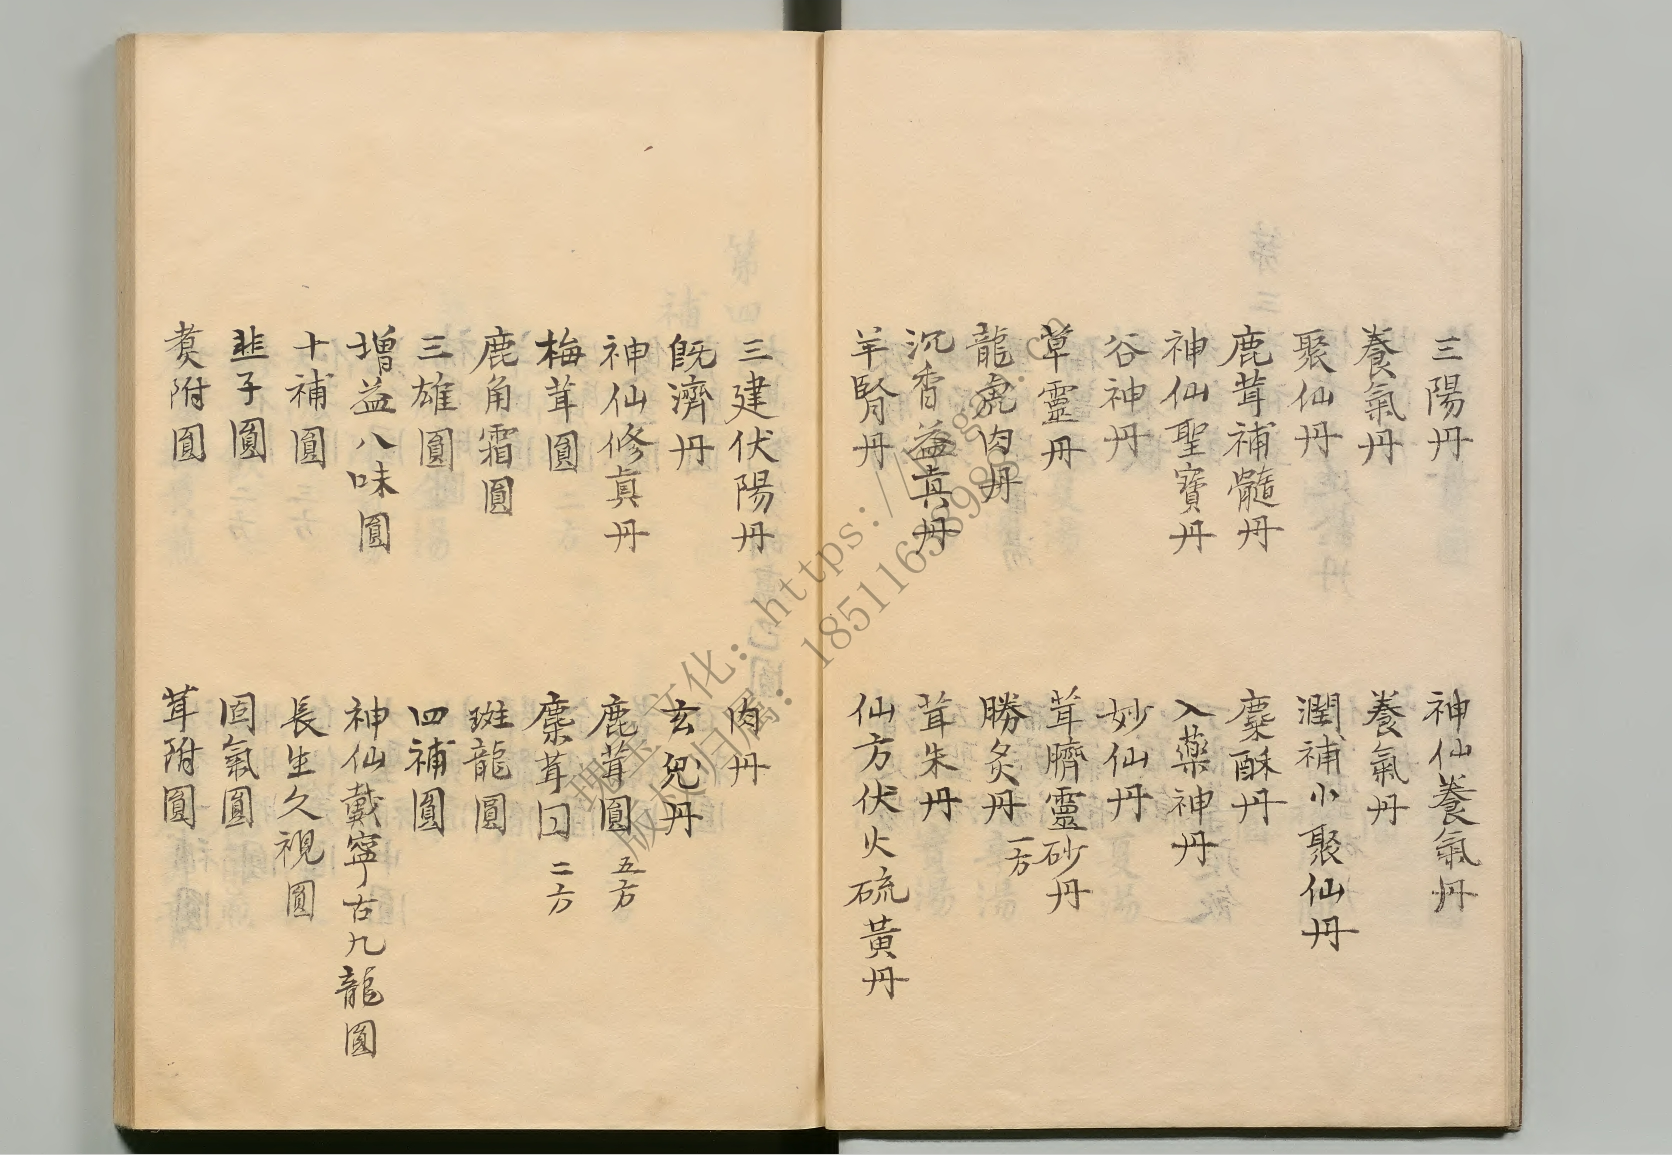 三陽丹
神仙養氣丹
養氣丹
養氣丹
聚仙丹
潤補小聚仙丹
鹿茸補髓丹
麋酥丹
神仙聖寶丹
入藥神丹
谷神丹
妙仙丹
草靈丹
茸臍靈砂丹
龍虎肉丹
勝灸丹 一方
沉香益真丹
茸朱丹
羊腎丹
仙方伏火硫黃丹
三建伏陽丹
肉丹
既濟丹
玄兔丹
神仙修真丹
鹿茸圓 五方
梅茸圓
麋茸囙 二方
鹿角霜圓
斑龍圓
三雄圓
四補圓
增益八味圓
神仙戴寧古九龍圓
十補圓
長生久視圓
韭子圓
固氣圓
附圓
茸附圓
瑰宝文化:https://
版权归属:185116389